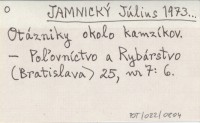 JAMNICKÝ Július 1973...
Otázniky okolo kamzíkov.
— Poľovníctvo a Rybárstvo
(Bratislava) 25, nr 7: 6.